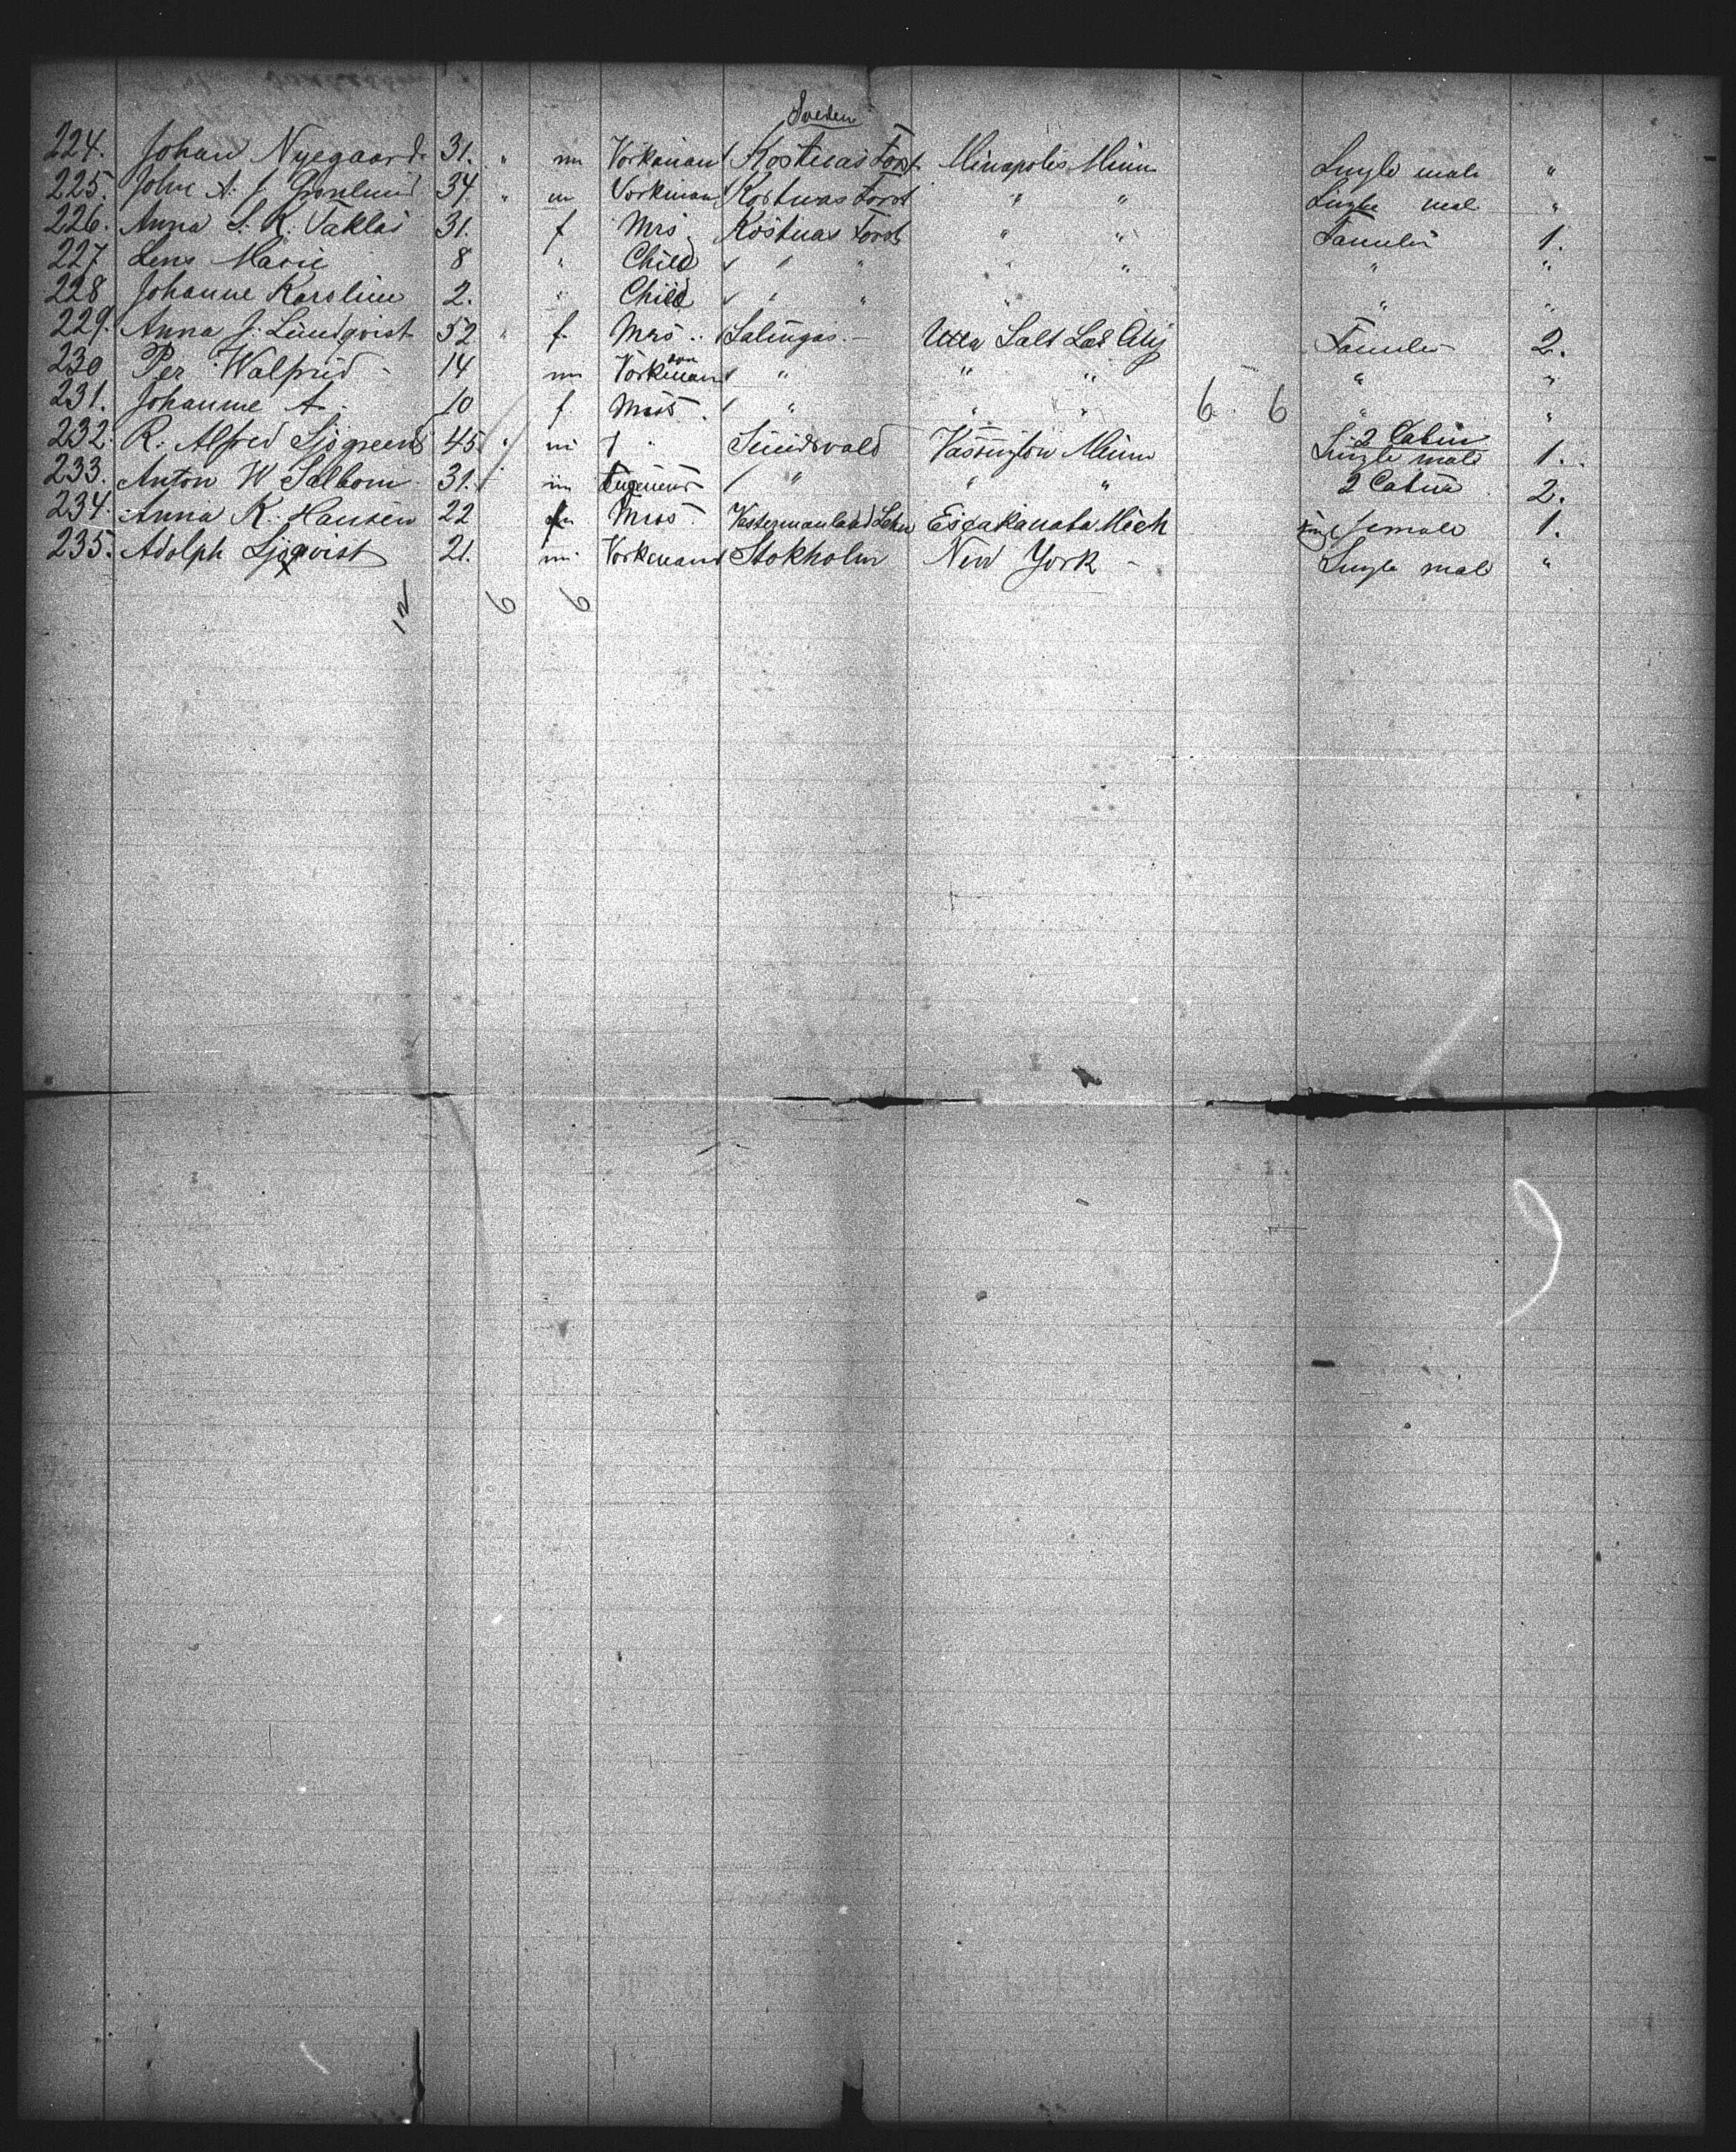 Sveden
224. Johan Nyegaard. 31. " m Vorkman Kostnas Forst Minapolis Minn Single male "
225. John A. J. Gronlund 34. " m Vorkman Kostnas Forst " " Single male "
226. Anna S. K. Taklas 31. f Mrs. Kostnas Forst " " Famili 1.
227 Lens Marie 8 " Child " " " " " "
228 Johanne Karoline 2. " Child " " " " "
229. Anna J. Lundqvist 52 " f. Mrs. Salingas. Utta Salt Lak City Famili 2.
230 Per Walfrid - 14 m Vorkman son " " " " "
231. Johanne A. 10 f. Miss. " " " 6. 6 " "
232. R. Alfred Sjögreen 45. " m " Sundsvald Vassington Minn 2 Cabin Single male 1.
233. Anton W Salbom 31. " m Ingeniør " " " 2 Cabin 2.
234. Anna K. Hansen 22 f Miss. Vestermanland Lehn Escakanaba Mich Single female 1.
235. Adolph Sjöqvist 21. m Vorkmand Stokholm New York - Single male "
12 6 6